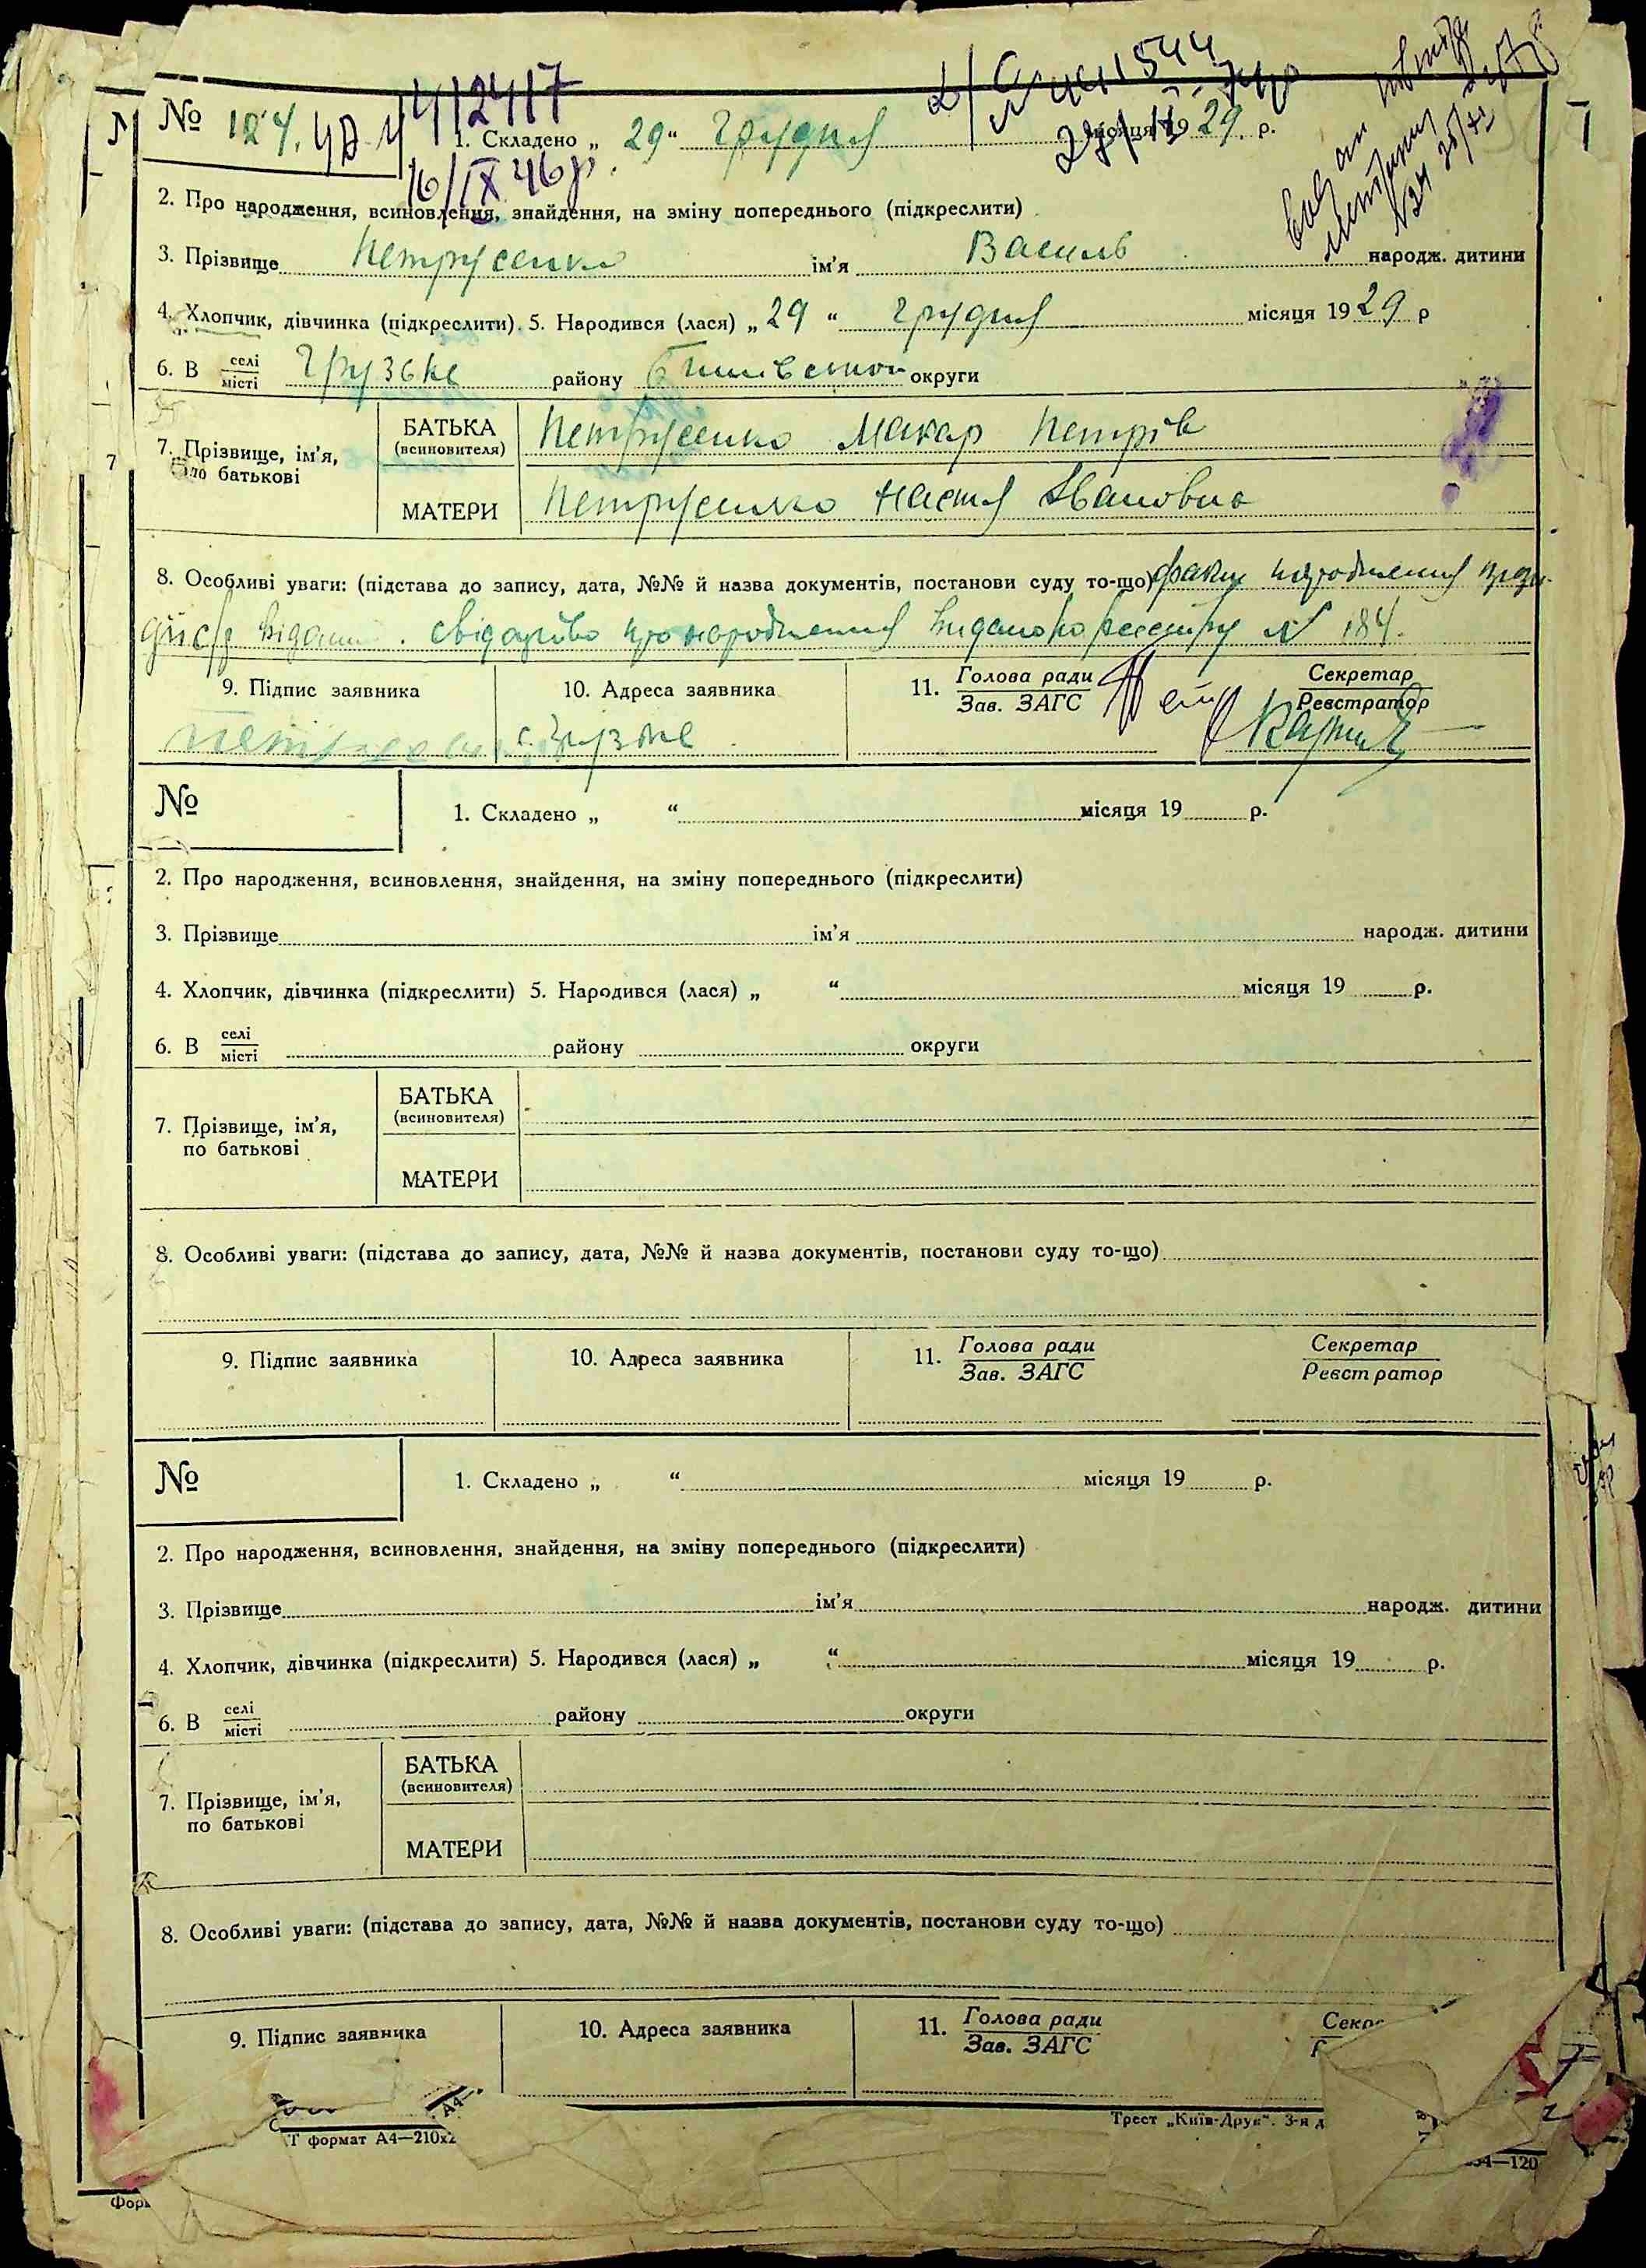 № 184. 412417
1. Складено „ 29 “ грудня місяця 1929 р.
16/IX 46 р.
2. Про народження, всиновлення, знайдення, на зміну попереднього (підкреслити)
3. Прізвище Петрусенко ім'я Василь народж. дитини
4. Хлопчик, дівчинка (підкреслити). 5. Народився (лася) „ 29 “ грудня місяця 1929 р
6. В селі/місті Грузьке району округи
7. Прізвище, ім'я, по батькові
БАТЬКА (всиновителя) Петрусенко Макар Петрів
МАТЕРИ Петрусенко Настя Івановна
8. Особливі уваги: (підстава до запису, дата, №№ й назва документів, постанови суду то-що) факт народження
свідоцтво про народження видано по реєстру № 184.
9. Підпис заявника 10. Адреса заявника 11. Голова ради/Зав. ЗАГС Секретар/Реєстратор
с. Грузьке
№
1. Складено „ “ місяця 19 р.
2. Про народження, всиновлення, знайдення, на зміну попереднього (підкреслити)
3. Прізвище ім'я народж. дитини
4. Хлопчик, дівчинка (підкреслити) 5. Народився (лася) „ “ місяця 19 р.
6. В селі/місті району округи
7. Прізвище, ім'я, по батькові
БАТЬКА (всиновителя)
МАТЕРИ
8. Особливі уваги: (підстава до запису, дата, №№ й назва документів, постанови суду то-що)
9. Підпис заявника 10. Адреса заявника 11. Голова ради/Зав. ЗАГС Секретар/Реєстратор
№
1. Складено „ “ місяця 19 р.
2. Про народження, всиновлення, знайдення, на зміну попереднього (підкреслити)
3. Прізвище ім'я народж. дитини
4. Хлопчик, дівчинка (підкреслити) 5. Народився (лася) „ “ місяця 19 р.
6. В селі/місті району округи
7. Прізвище, ім'я, по батькові
БАТЬКА (всиновителя)
МАТЕРИ
8. Особливі уваги: (підстава до запису, дата, №№ й назва документів, постанови суду то-що)
9. Підпис заявника 10. Адреса заявника 11. Голова ради/Зав. ЗАГС
Т формат А4—210х Трест „Київ-Друк“. 3-я д